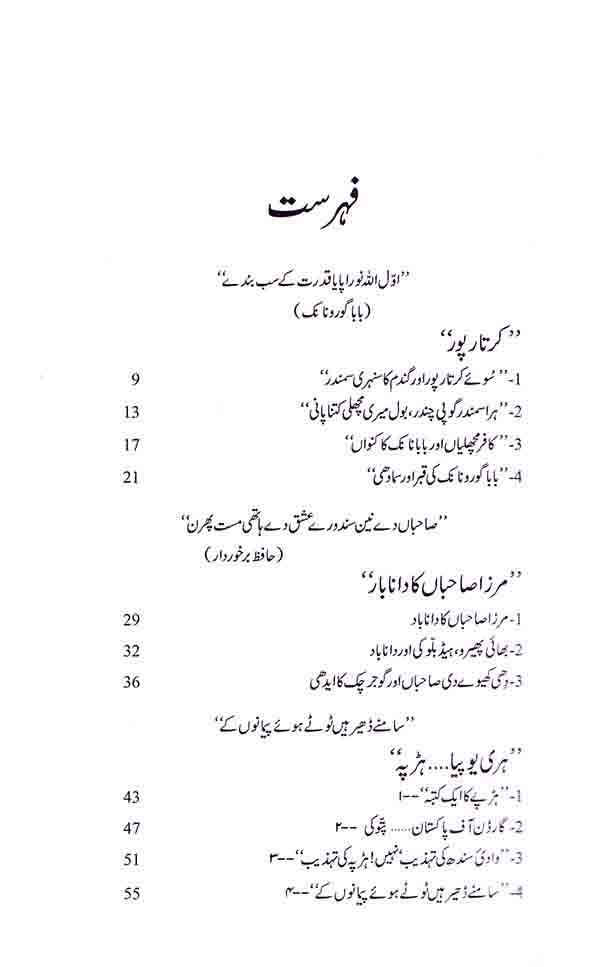 فہرست
”اوّل اللہ نور اپایا قدرت کے سب بندے“
(بابا گورونانک)
”کرتارپور“
1- ”سُوئے کرتارپور اور گندم کا سنہری سمندر“ 9
2- ”ہرا سمندر گوپی چندر، بول میری مچھلی کتنا پانی“ 13
3- ”کافر مچھلیاں اور بابا نانک کا کنواں“ 17
4- ”بابا گورونانک کی قبر اور سمادھی“ 21
”صاحباں دے نین سندورے عشق دے ہاتھی مست پھرن“
(حافظ برخوردار)
”مرزا صاحباں کا دانا بار“
1- مرزا صاحباں کا دانا باد 29
2- بھائی پھیرو، ہیڈ بلوکی اور دانا باد 32
3- دِھی کھیوے دی صاحباں اور گوجر چک کا ایدھی 36
”سامنے ڈھیر ہیں ٹوٹے ہوئے پیمانوں کے“
”ہری یوپیا.... ہڑپہ“
1- ”ہڑپے کا ایک کتبہ“--۱ 43
2- گارڈن آف پاکستان...... پتوکی --۲ 47
3- ”وادیٔ سندھ کی تہذیب‘ نہیں! ہڑپہ کی تہذیب“--۳ 51
4- ”سامنے ڈھیر ہیں ٹوٹے ہوئے پیمانوں کے“--۴ 55